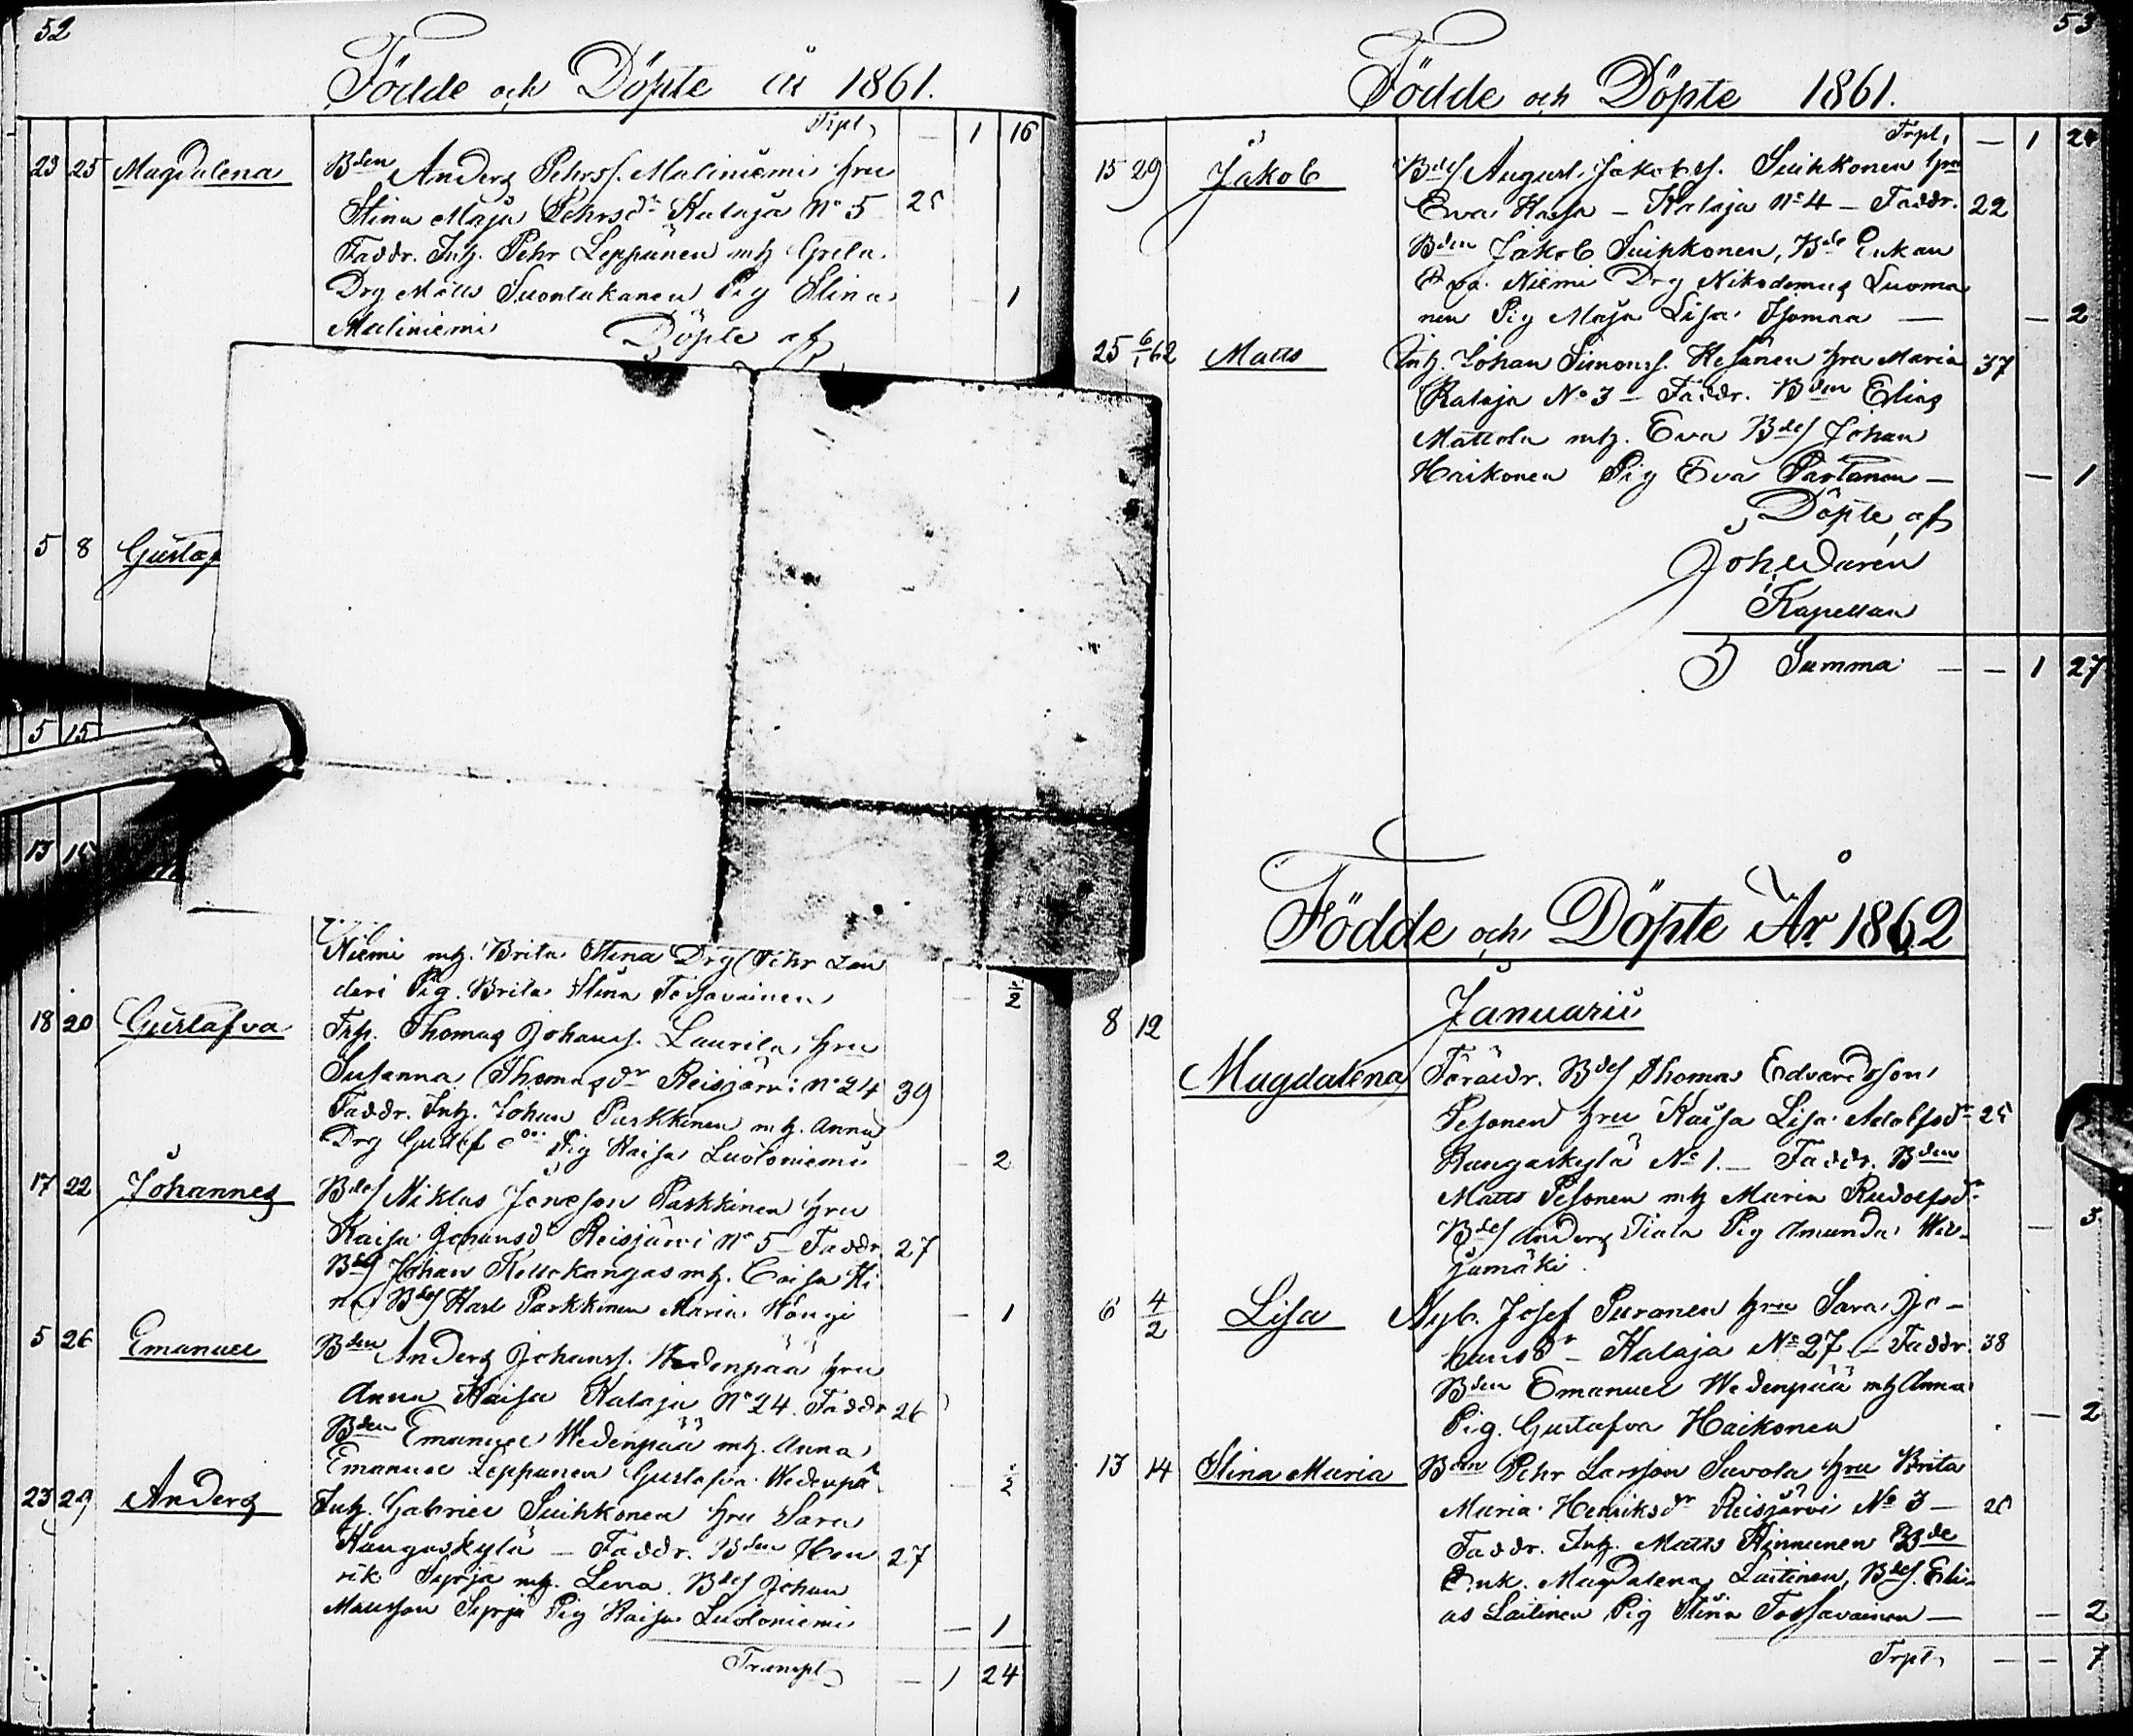 52
Födde och Döpte år 1861.
Trpt — 1 16
23 25 Magdalena Bden Anders Pehrss. Maliniemi hru
Stina Maja Pehrsdr Kalaja No 5 25
Faddr. Inh. Pehr Leppänen mh Greta
Drg Matts Suontakanen Pig Stina 1
Maliniemi Döpte af
5 8 Gustaf
5 15
13
Niemi mh. Brita Stina Drg Pehr Lan
deri Pig. Brita Stina Tossavainen 2
18 20 Gustafva Trp. Thomas Johanss. Laurila, hru
Susanna Thomasdr Reisjärvi No 24 39
Faddr. Inh. Johan Parkkinen mh. Anna
Drg Gustaf Pig Kaisa Luotoniemi — 2
17 22 Johannes Bdes Niklas Parkkinen hru
Kaisa Johansd Reisjärvi No 5 – Faddr. 27
Bdes Johan Kellokangas mh. Caisa Ki
Bdes Karl Parkkinen Maria — 1
5 26 Emanuel Bden Anders Johanss. Wedenpää hru
Anna Kaisa Kalaja No 24. Faddr 26
Bden Emanuel Wedenpää mh. Anna
Emanuel Leppänen Gustafva Wedenpä — 2
23 29 Anders Inh. Gabriel Suihkonen hru Sara
Kangaskylä — Faddr. Bden Hen 27
rik Syrjä mh. Lena. Bdes Johan
Mattsson Syrjä Pig Kaisa Luotoniemi — 1
Transpt — 1 24
53
Födde och Döpte 1861.
Trpt, — 1 24
15 29 Jakob Bdes August Jakobss. Suihkonen hru
Eva Kaisa — Kalaja No 4 — Faddr. 22
Bden Jakob Suihkonen, Bde Enkan
Eva Niemi Drg Nikodemus Luoma
nen Pig Maja Lisa Isomaa — — 2
25 6/1 62 Matts Inh. Johan Simonss. Kesänen hru Maria 37
Kalaja No 3 — Faddr. Bden Elias
Mattola mh. Eva Bdes Johan
Haikonen Pig Eva Partanen — — 1
Döpte af
Kapellan
Summa — — 1 27
Födde och Döpte År 1862
Januarii
8 12
Magdalena Föräldr. Bdes Thomas Edvardsson
Pesonen hru Kaisa Lisa Adolfsdr 25
Kangaskylä No 1. — Faddr. Bden
Matts Pesonen mh Maria Rudolfsdr
Bdes Anders Tiala Pig Amanda Wil- — 3
jamäki.
6 4/2 Lisa Nyb. Josef Puranen hru Sara Jo-
hansdr — Kalaja No 27 — Faddr. 38
Bden Emanuel Wedenpää mh Anna
Pig. Gustafva Haikonen — 2
13 14 Stina Maria Bden Pehr Larsson Savola hru Brita
Maria Henriksdr Reisjärvi No 3 — 26
Faddr. Inh. Matts Kinnunen Bde
Enk. Magdalena Laitinen, Bdes. Eli-
as Laitinen Pig Stina Tossavainen — — 2
Trpt, — — 7